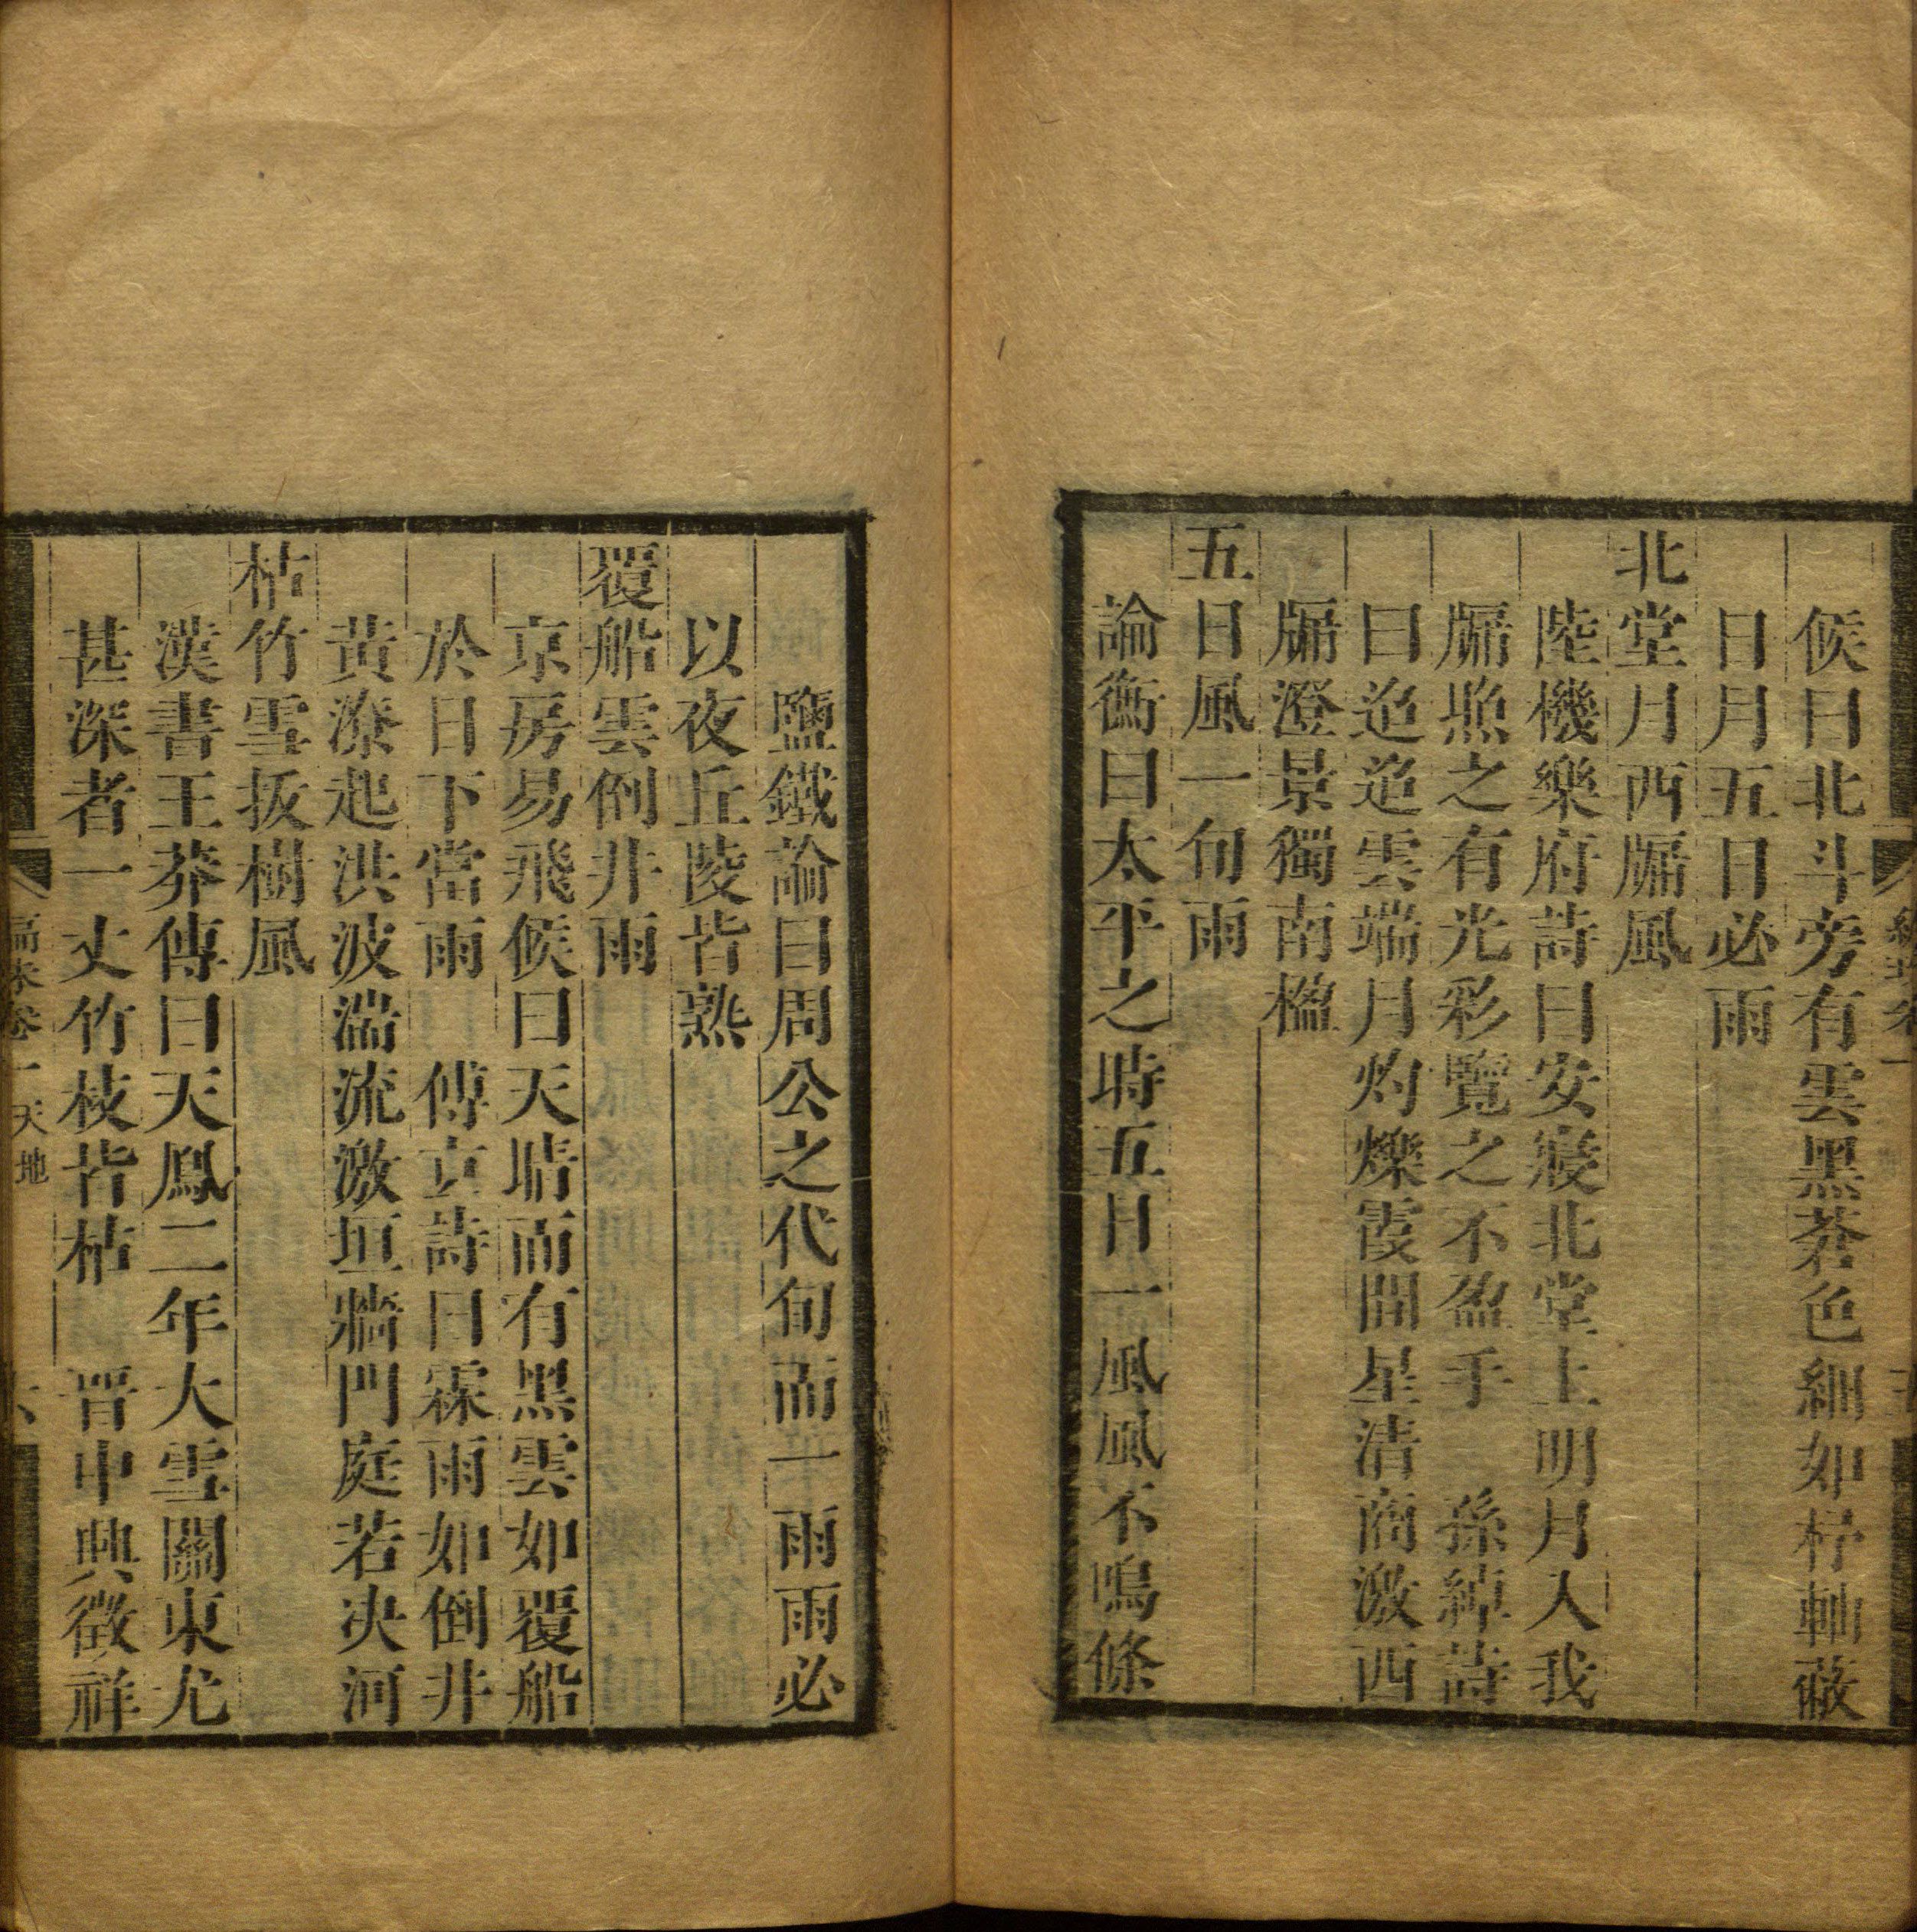 候曰北斗旁有雲黑蒼色細如杼軸蔽
日月五日必雨
北堂月西牖風
陸機樂府詩曰安寢北堂上明月入我
牖照之有光彩覽之不盈手　孫綽詩
曰迢迢雲端月灼爍霞間星清商激西
牖澄景獨南楹
五日風一旬雨
論衡曰太平之時五日一風風不鳴條
鹽鐵論曰周公之代旬而一雨雨必
以夜丘陵皆熟
覆船雲倒井雨
京房易飛候曰天晴而有黑雲如覆船
於日下當雨　傅玄詩曰霖雨如倒井
黃潦起洪波湍流激垣牆門庭若決河
枯竹雪拔樹風
漢書王莽傳曰天鳳二年大雪關東尤
甚深者一丈竹枝皆枯　晋中興徵祥
卷一 天地